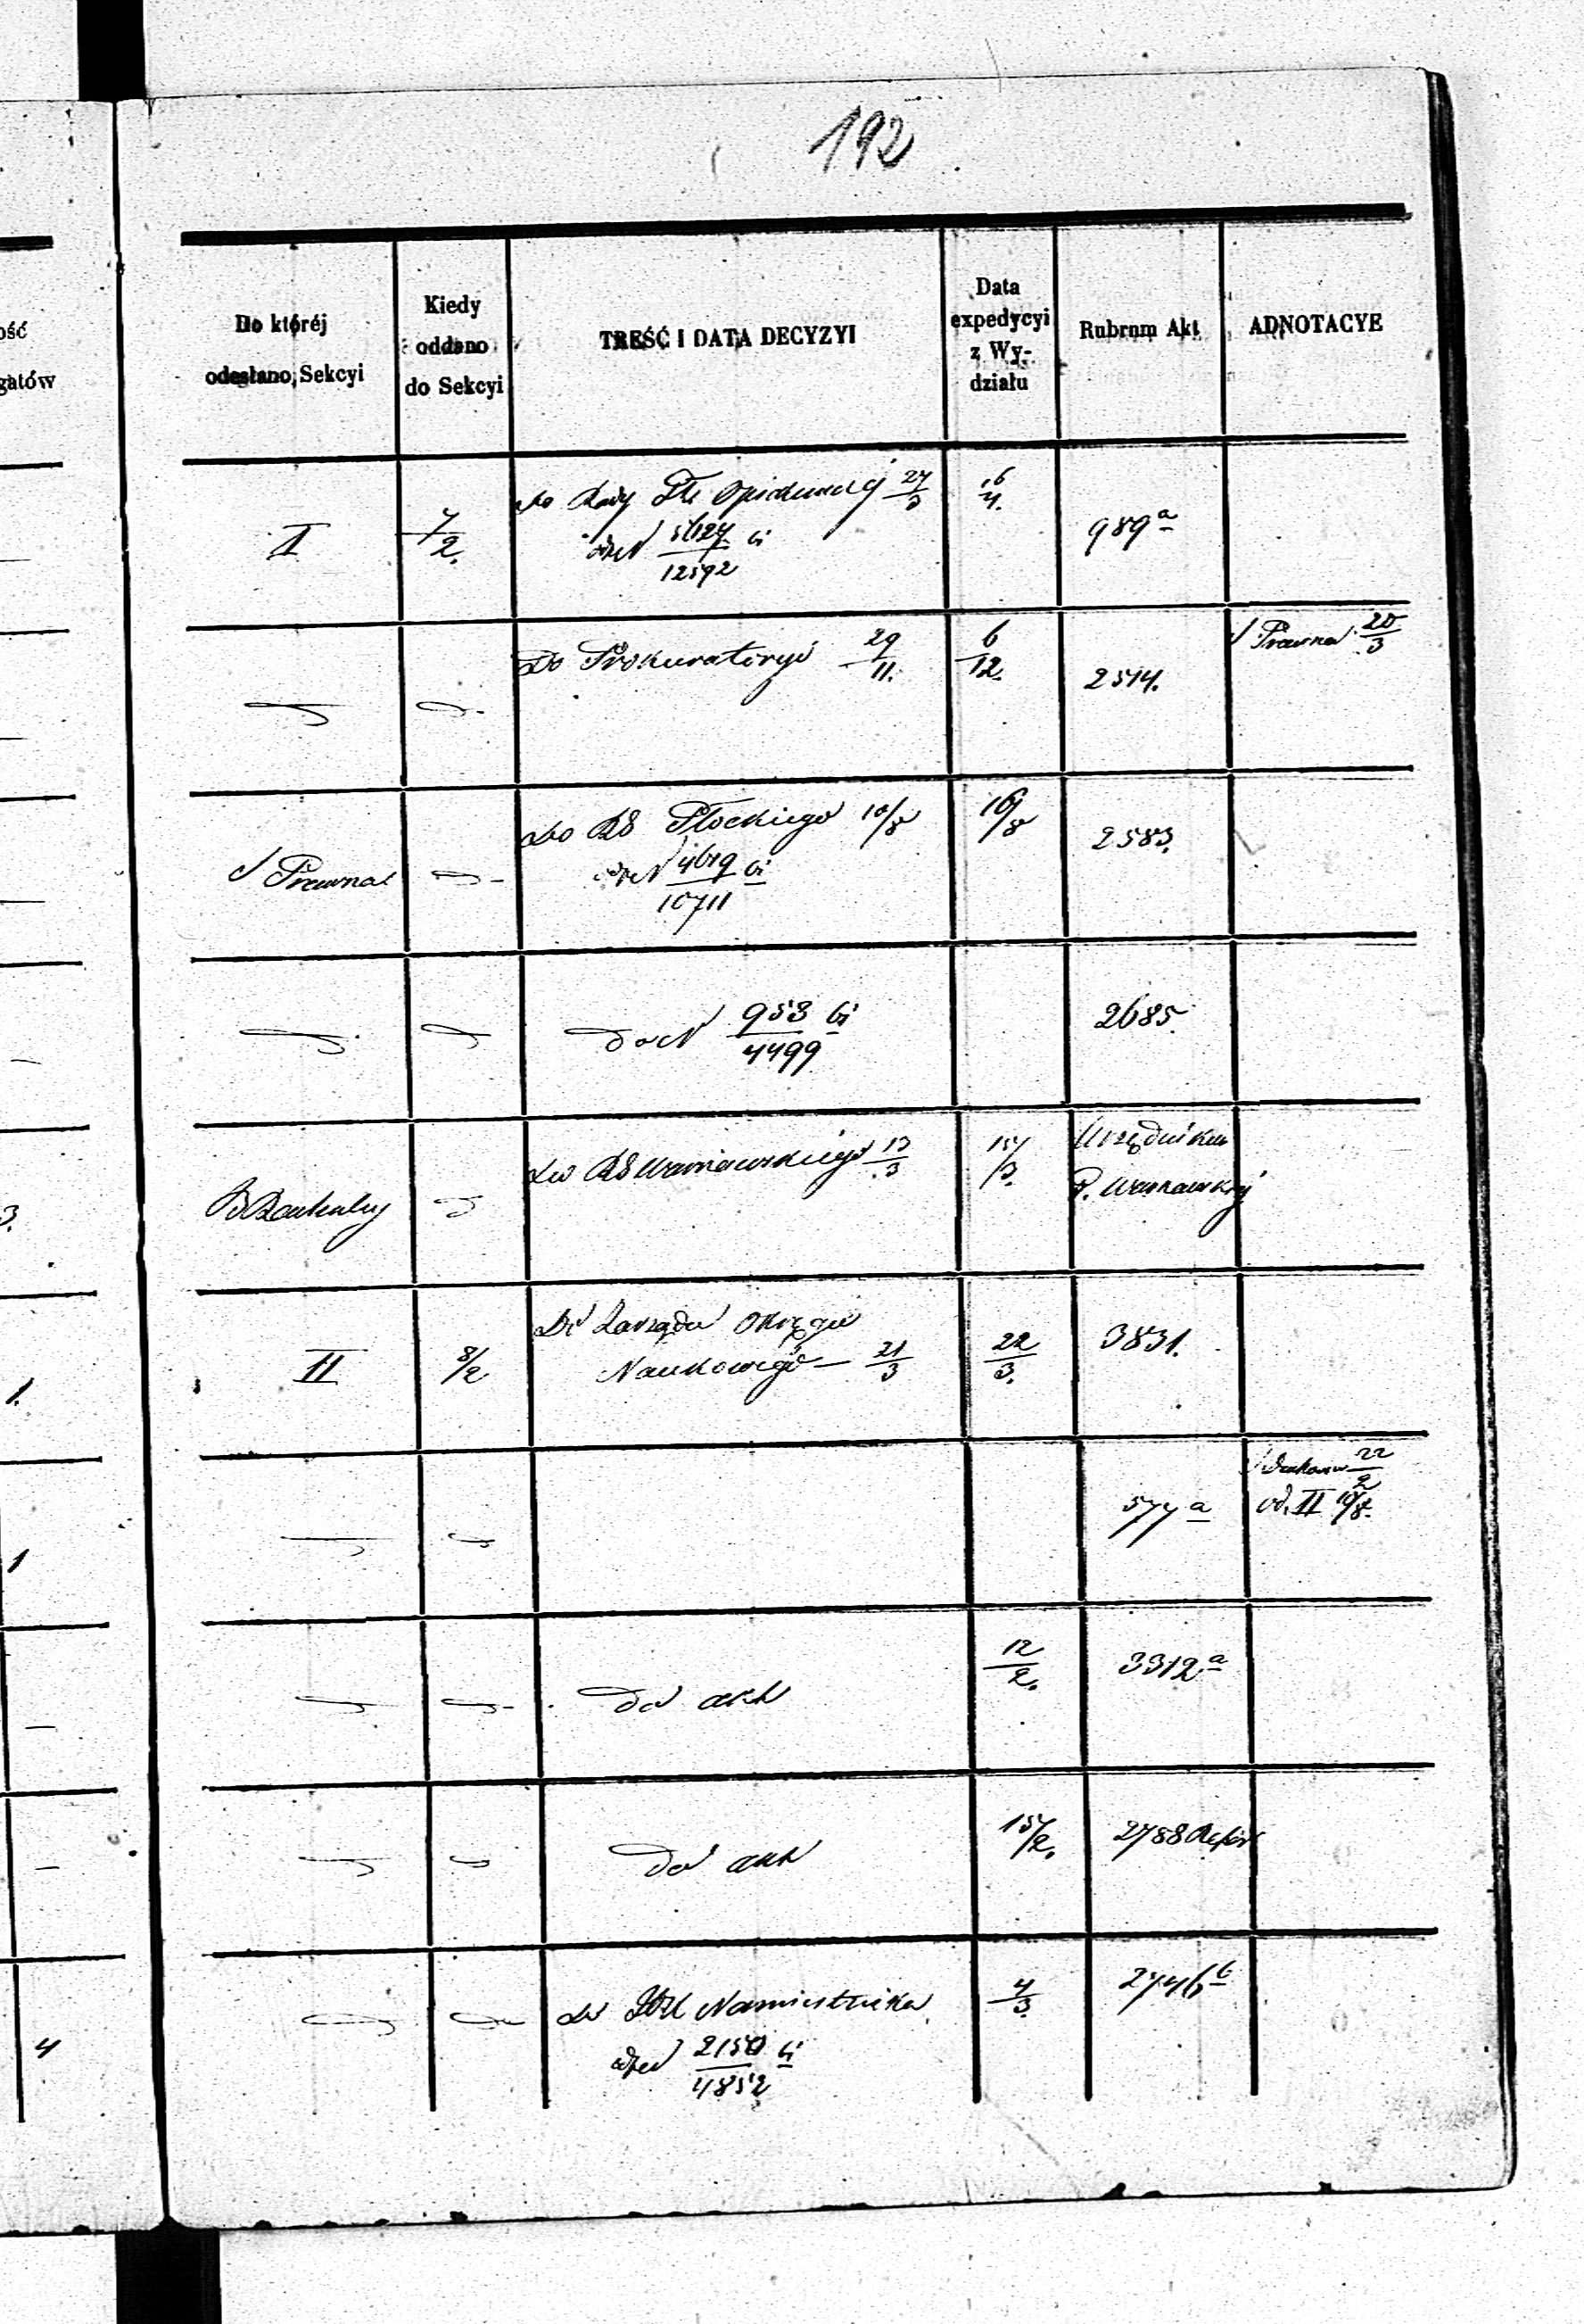 192
ość
gatów
Do któréj
odesłano Sekcyi
Kiedy
oddano
do Sekcyi
TREŚĆ I DATA DECYZYI
Data
expedycyi
z Wy-
działu
Rubrum Akt
ADNOTACYE
II
7/2.
do Rady Gł. Opiekuńczej 27/3
12592
6/4.
989 a
Do Prokuratoryi 29/11.
6/12.
2514.
S Prawna 20/3
S Prawna
do RG Płockiego 10/8
4619/10711
16/8
2583.
do N 953/4499
2685.
do RG Warszawskiego 13/3
15/3.
Urzędników
G. Warszawskiej
3.
II
8/2
Do Zarządu Okręgu
Naukowego — 21/3
22/3.
3831.
1.
577 a
22/2
od. II 10/8.
1
do akt
12/2.
3312 a
do akt
15/2.
2788
do Namiestnika
2150/4852
4/3
2746 b
4